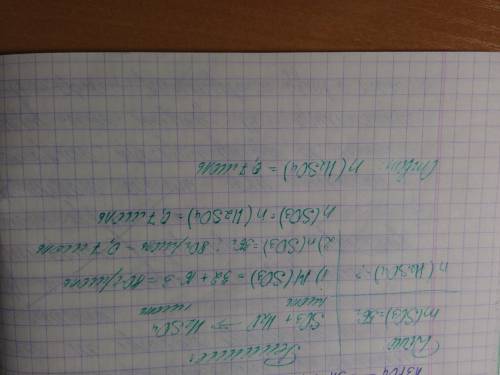 Дано:
m(SO3)=56г
n(H2SO4)-?
Решение:
SO3 + H2O => H2SO4
1моль 1моль
1) M(SO3) = 32 + 16·3 = 80г/моль
2) n(SO3)=56г : 80г/моль = 0,7моль
n(SO3)= n(H2SO4)= 0,7моль
Ответ: n(H2SO4) = 0,7моль